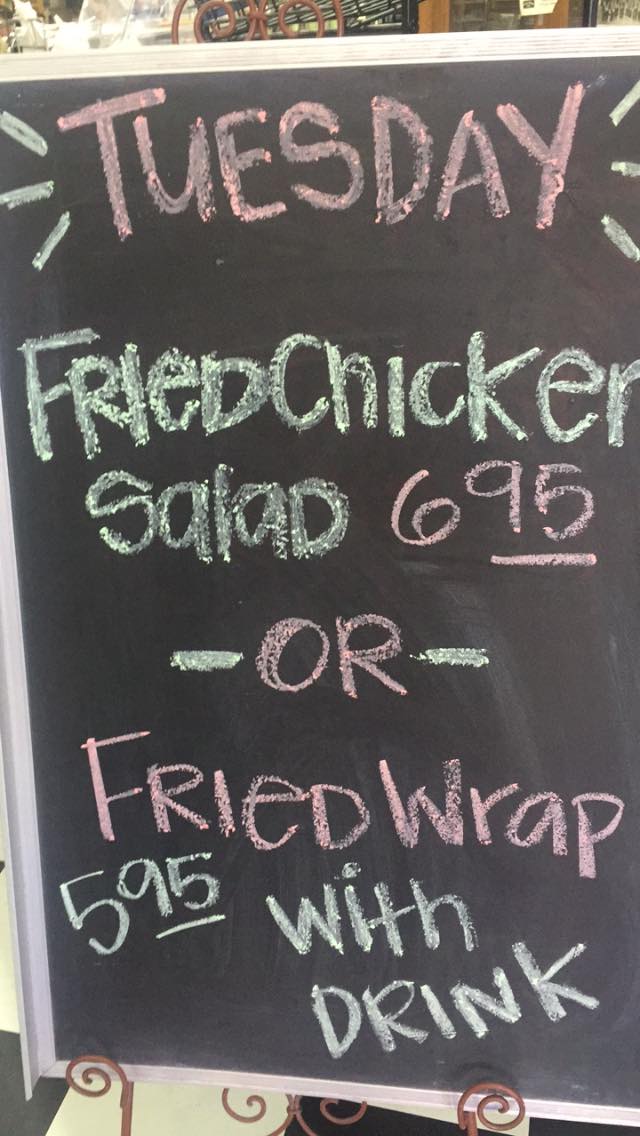 TUESDAY
FRIED Chicken
Salad 6 95
- OR -
FRIED Wrap
5 95 with
DRINK